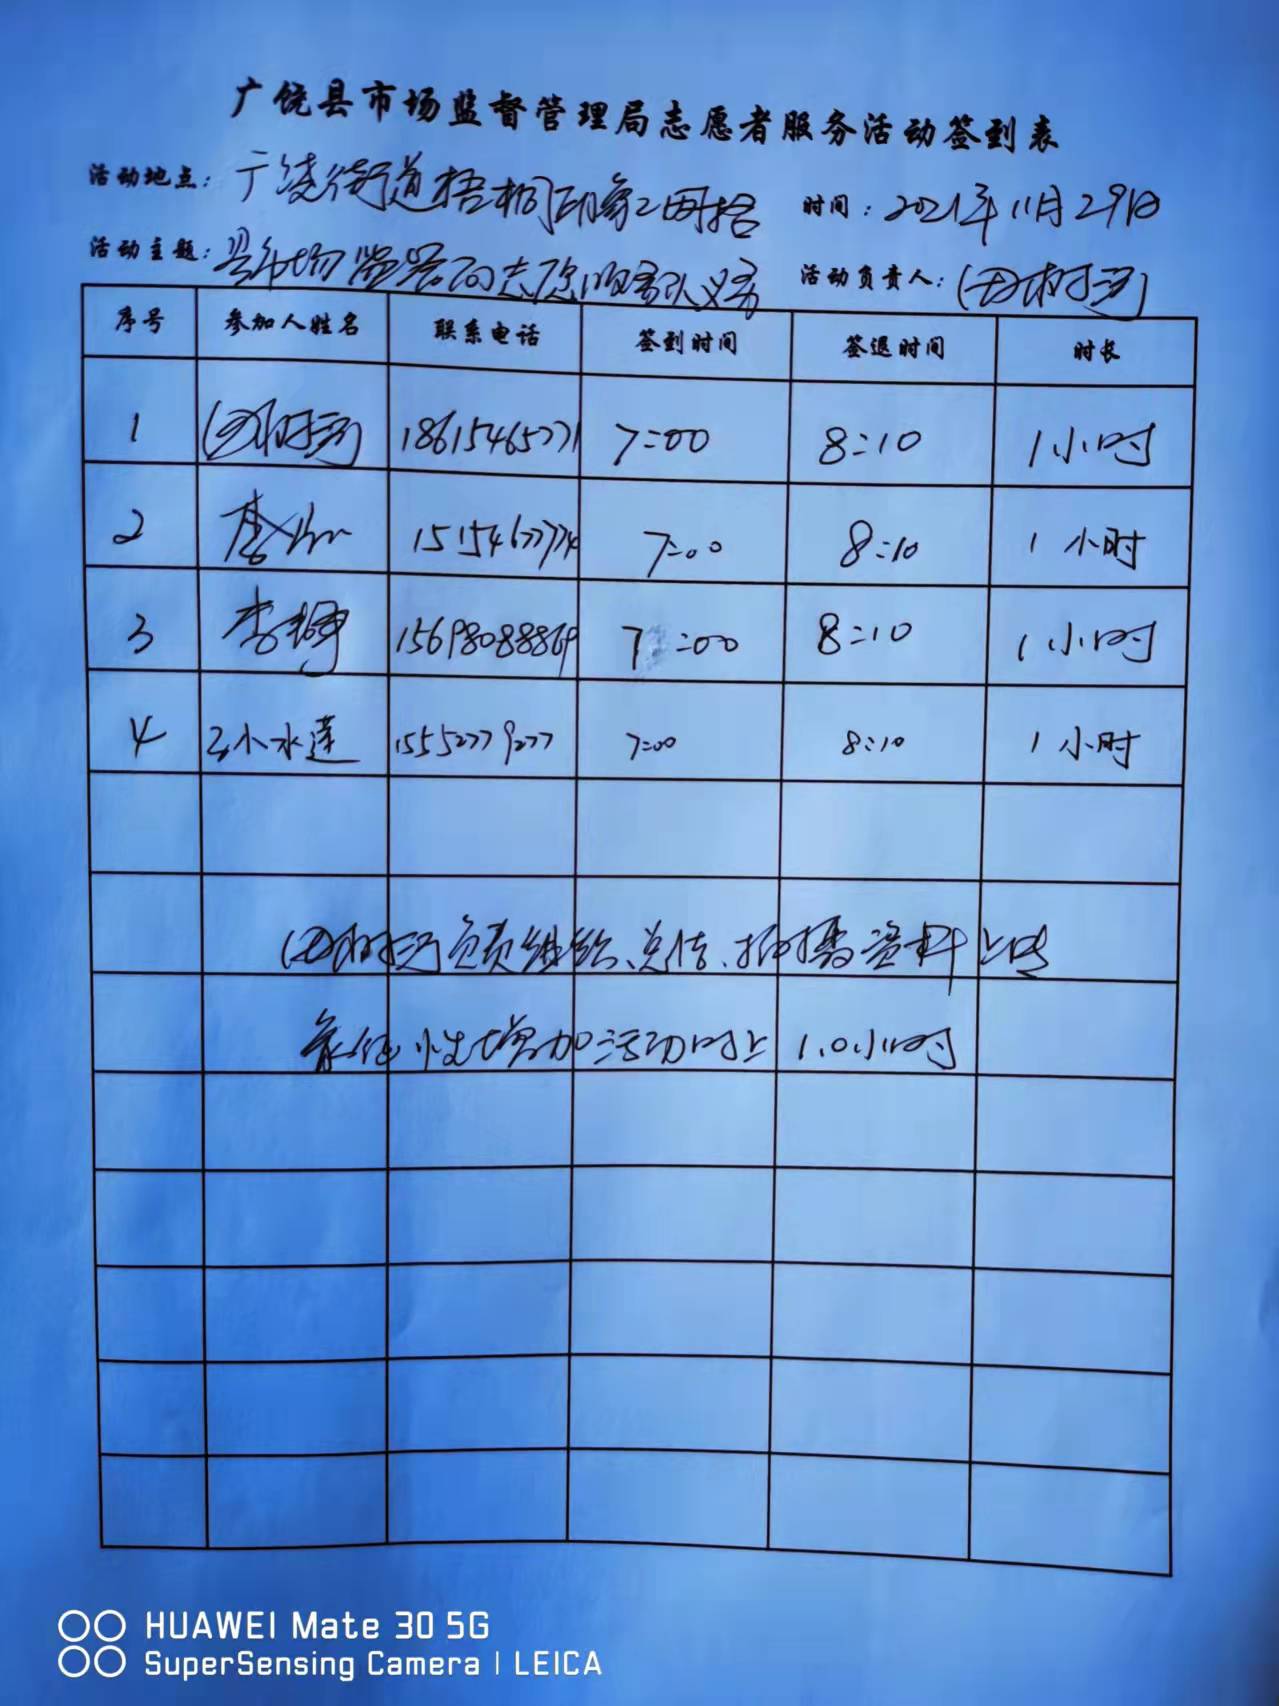 广饶县市场监督管理局志愿者服务活动签到表
活动地点：广饶街道梧桐印象 时间：2021年11月29日
活动主题：县市场监 志愿服务队义务 活动负责人：
序号 参加人姓名 联系电话 签到时间 签退时间 时长
1 18615465771 7:00 8:10 1小时
2 15154677774 7:00 8:10 1小时
3 李 15698088869 7:00 8:10 1小时
4 小水莲 15552779277 7:00 8:10 1小时
负责组织、总结、拍摄资料上传
增加活动时长 1.0小时
HUAWEI Mate 30 5G
SuperSensing Camera | LEICA